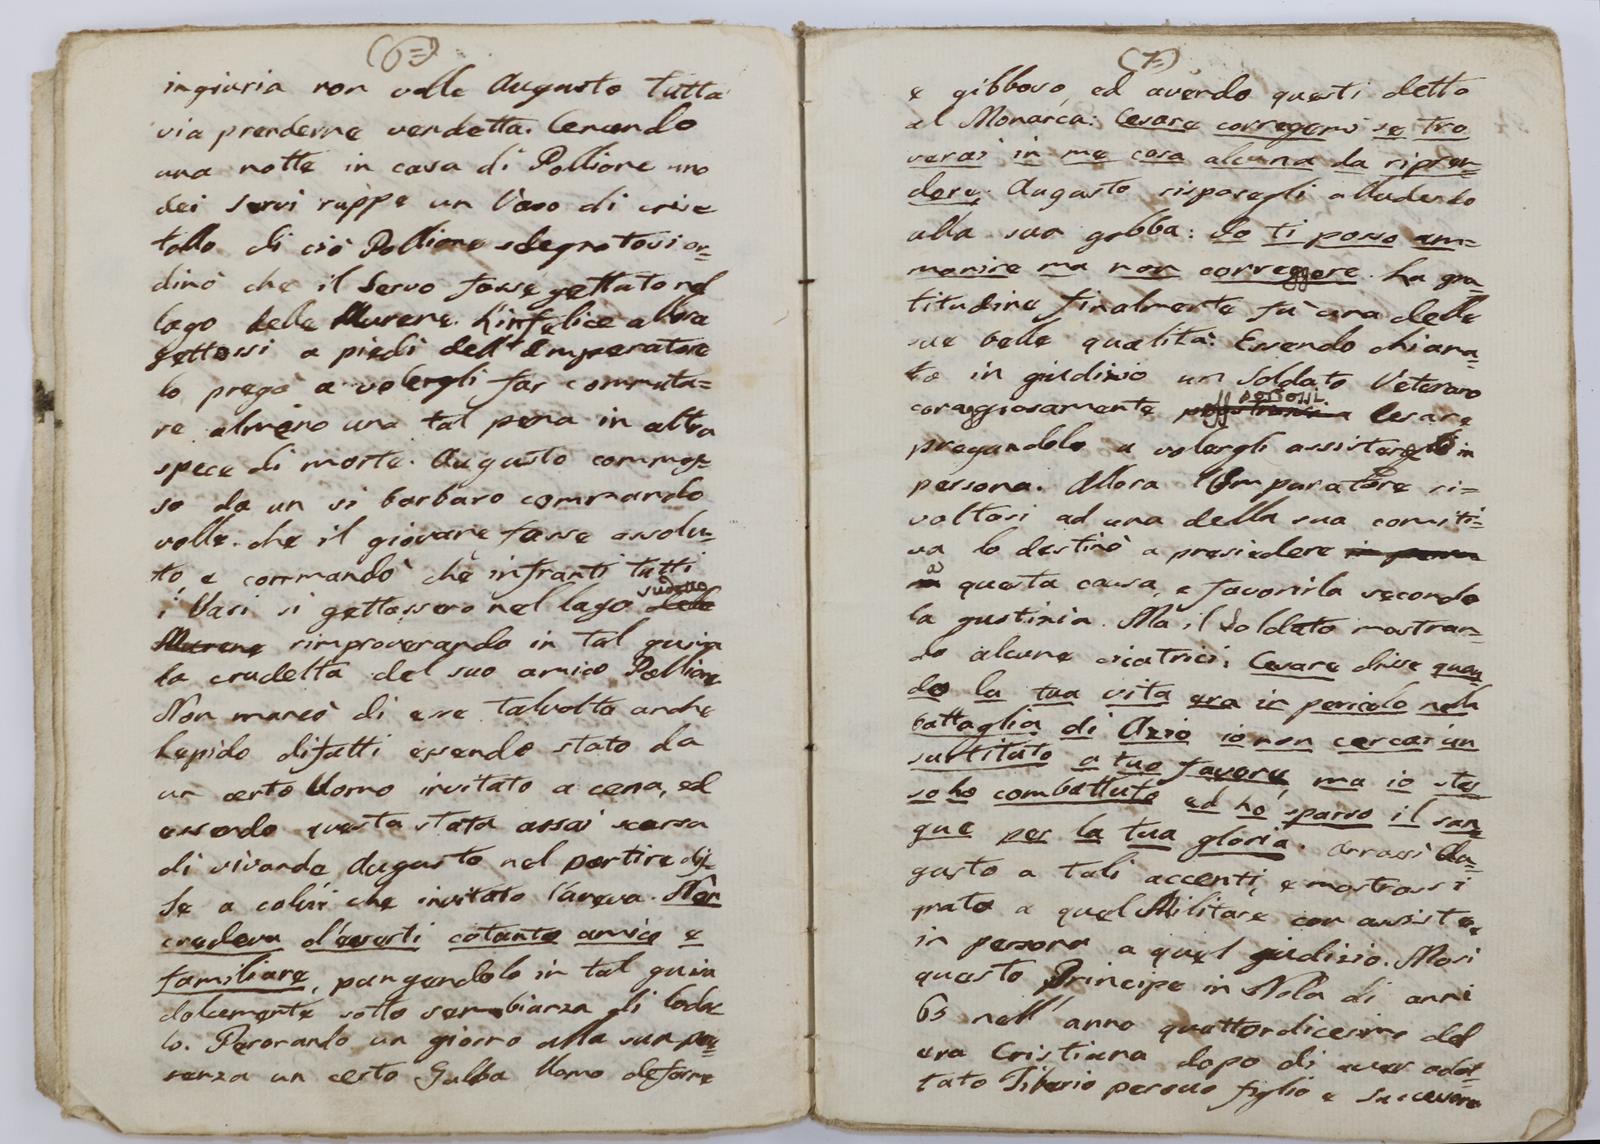 (6=)
ingiuria non volle Augusto tutta
via prenderne vendetta. Cenando
una notte in casa di Pollione uno
dei servi ruppe un Vaso di cris
tallo di ciò Pollione sdegnatosi or=
dinò che il Servo fosse gettato nel
lago delle Murene. L'infelice allora
gettossi a piedi dell'Imperatore
lo pregò a volergli far commuta=
re almeno una tal pena in altra
spece di morte. Augusto commos=
so da un si barbaro commando
volle che il giovane fosse assolu=
to, e commandò che infranti tutti
i Vasi si gettassero nel lago delle sudetto
Murene rimproverando in tal guisa
la crudeltà del suo amico Pollione
Non mancò di ese talvolta anche
Lepido difatti essendo stato da
un certo Uomo invitato a cena, ed
essendo questa stata assai scarsa
di vivande Augusto nel partire dis=
se a colui che invitato l'aveva. Non
credeva d'eserti cotanto amico e
familiare, pungendolo in tal guisa
dolcemente sotto sembianza di lodar
lo. Perorando un giorno alla sua pre=
senza un certo Galba Uomo deforme
(7=)
e gibboso, ed avendo questi detto
al Monarca: Cesare corregemi se tro
verai in me cosa alcuna da ripren=
dere. Augusto risposegli alludendo
alla sua gobba: Io ti posso am=
monire ma non correggere. La gra=
titudine finalmente fù una delle
sue belle qualità: Essendo chiama=
to in giudizio un Soldato Veterano
coraggiosamente portossi a Cesare
pregandolo a volergli assistere in
persona. Allora l'Imperatore ri=
voltosi ad uno della sua comiti=
va lo destinò a presiedere in perso
na a questa causa, e favorirla secondo
la giustizia. Ma il Soldato mostran=
do alcune cicatrici; Cesare disse quan
do la tua vita era in pericolo nella
battaglia di Azio io non cercai un
sustituto a tuo favore, ma io stes
so ho combattuto ed ho sparso il san=
gue per la tua gloria. Arrossì Au=
gusto a tali accenti, e mostrossi
grato a quel Militare con assiste=
in persona a quel giudizio. Morì
questo Principe in Nola di anni
65 nell'anno quattordicesimo del
era Cristiana dopo di aver adot=
tato Tiberio per suo figlio e Successore